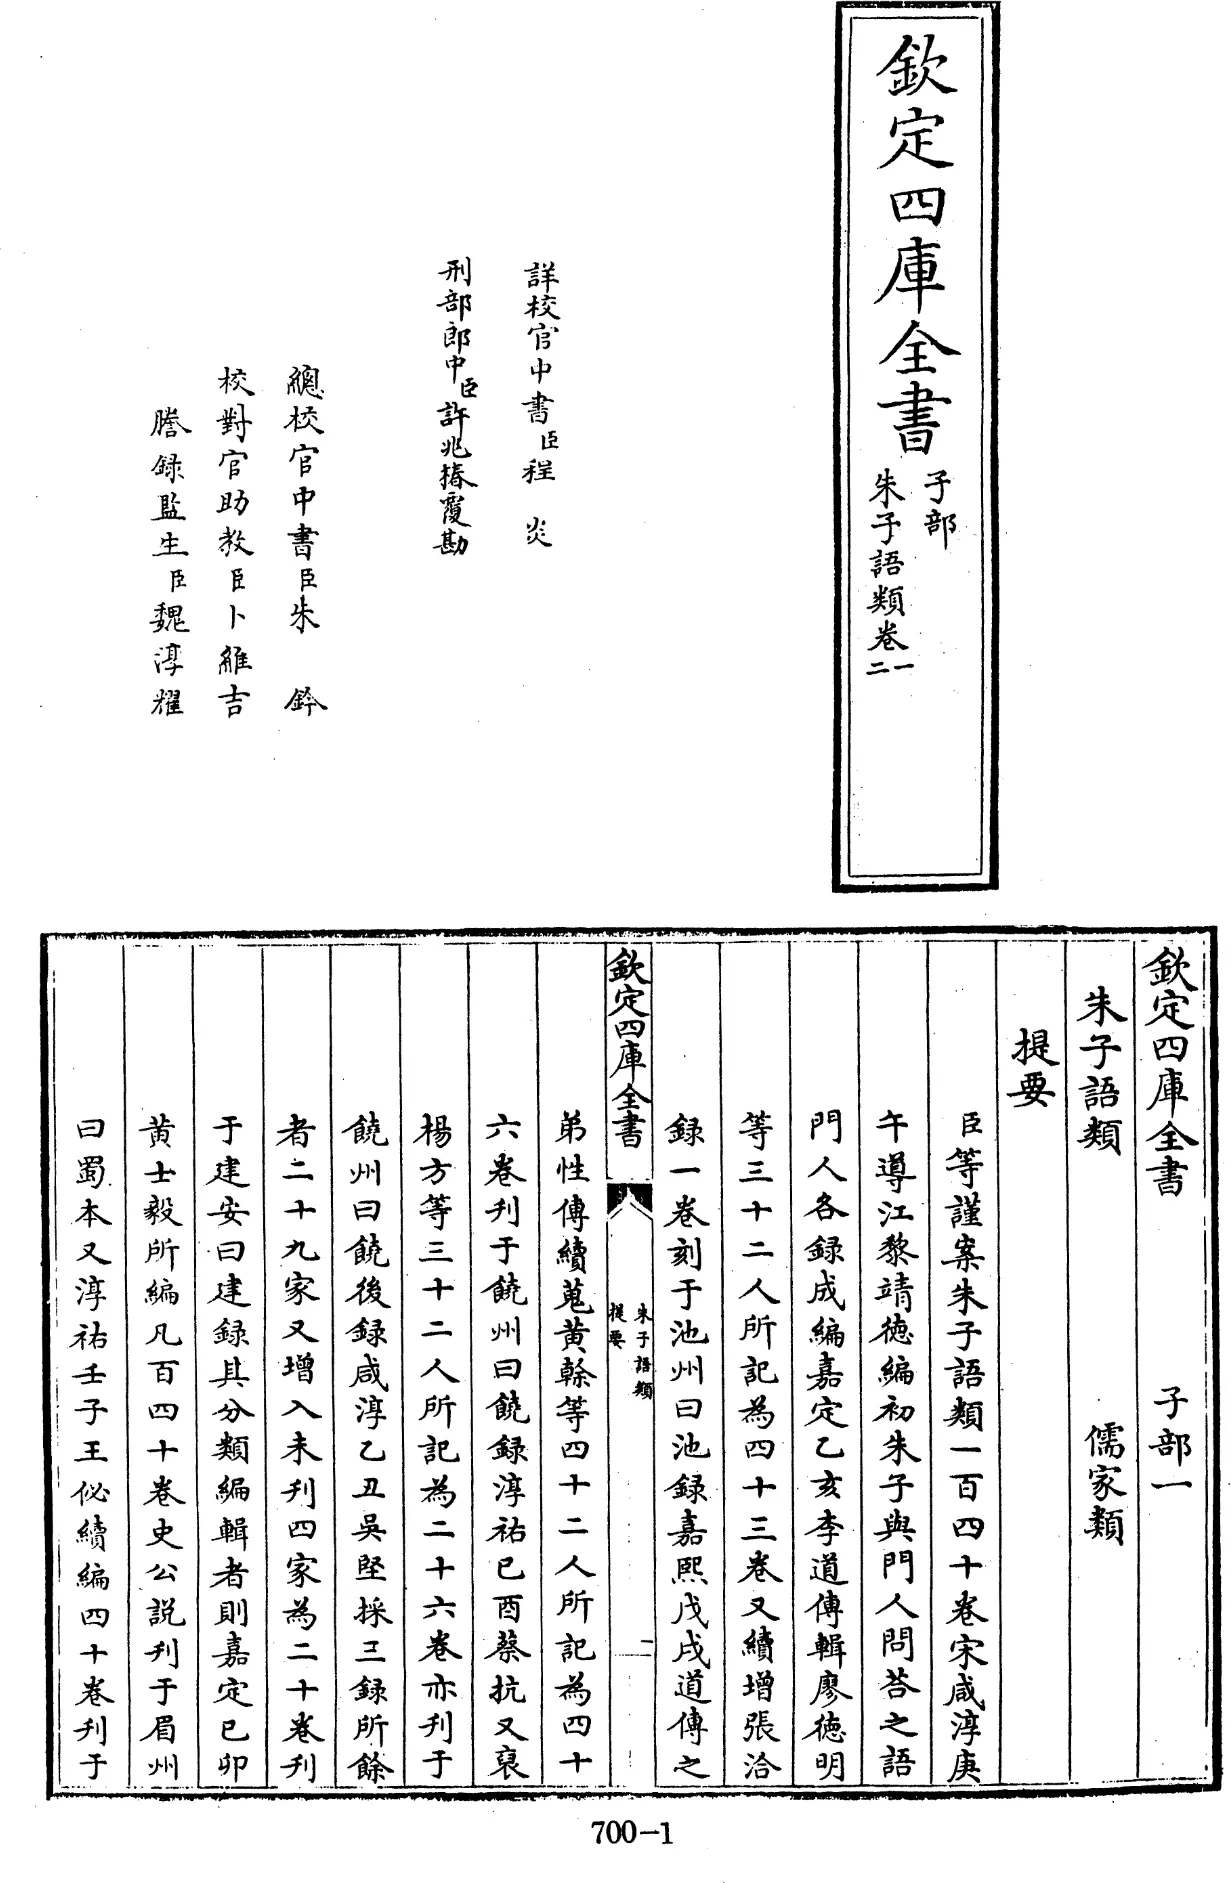 欽定四庫全書
子部
朱子語類卷一
二
詳校官中書臣程炎
刑部郎中臣許兆椿覆勘
總校官中書臣朱鈐
校對官助教臣卜維吉
謄録監生臣魏淳耀
欽定四庫全書 子部一
朱子語類 儒家類
提要
臣等謹案朱子語類一百四十卷宋咸淳庚
午導江黎靖德編初朱子與門人問荅之語
門人各録成編嘉定乙亥李道傳輯廖德明
等三十二人所記為四十三卷又續增張洽
録一卷刻于池州曰池録嘉熙戊戌道傳之
欽定四庫全書
朱子語類
提要
一
弟性傳續蒐黄榦等四十二人所記為四十
六卷刊于饒州曰饒録淳祐已酉蔡抗又裒
楊方等三十二人所記為二十六卷亦刊于
饒州曰饒後録咸淳乙丑吳堅採三録所餘
者二十九家又增入未刊四家為二十卷刊
于建安曰建録其分類編輯者則嘉定已卯
黄士毅所編凡百四十卷史公説刊于眉州
曰蜀本又淳祐壬子王佖續編四十卷刊于
700-1